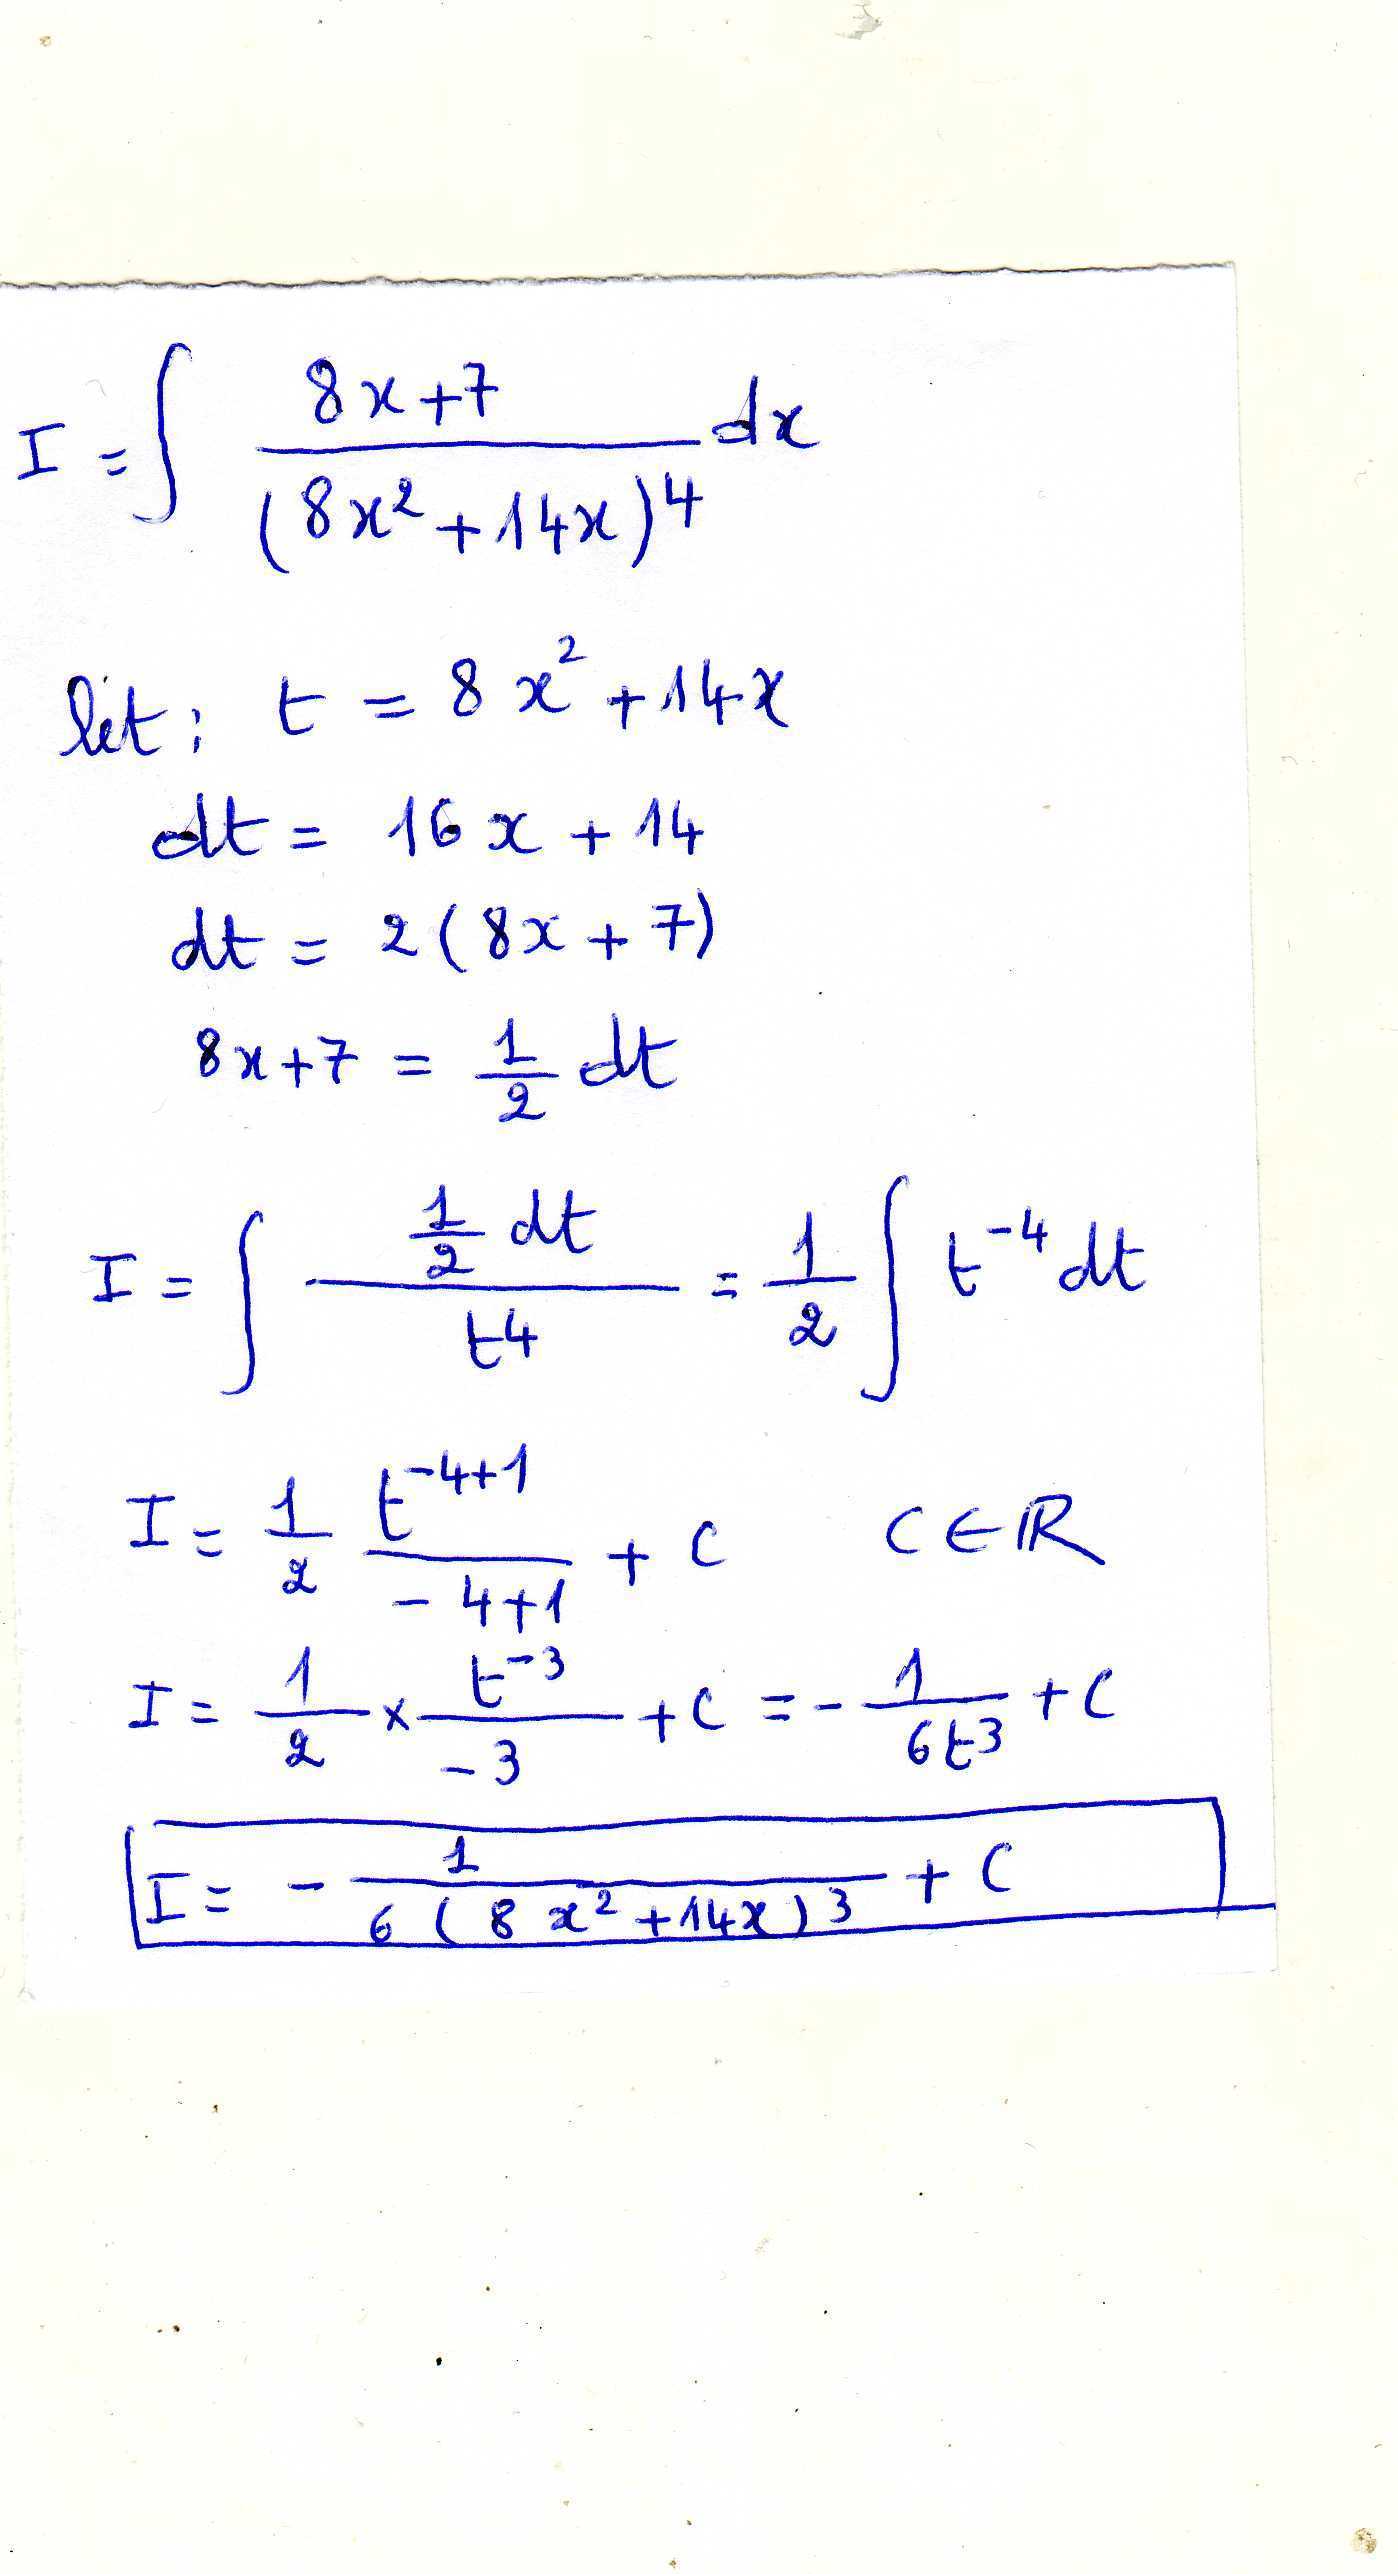 I = ∫ (8x+7)/(8x²+14x)⁴ dx
let: t = 8x² + 14x
dt = 16x + 14
dt = 2(8x+7)
8x+7 = 1/2 dt
I = ∫ (1/2 dt)/t⁴ = 1/2 ∫ t⁻⁴ dt
I = 1/2 t⁻⁴⁺¹/(-4+1) + C C∈ℝ
I = 1/2 × t⁻³/(-3) + C = - 1/(6t³) + C
I = - 1/(6(8x²+14x)³) + C